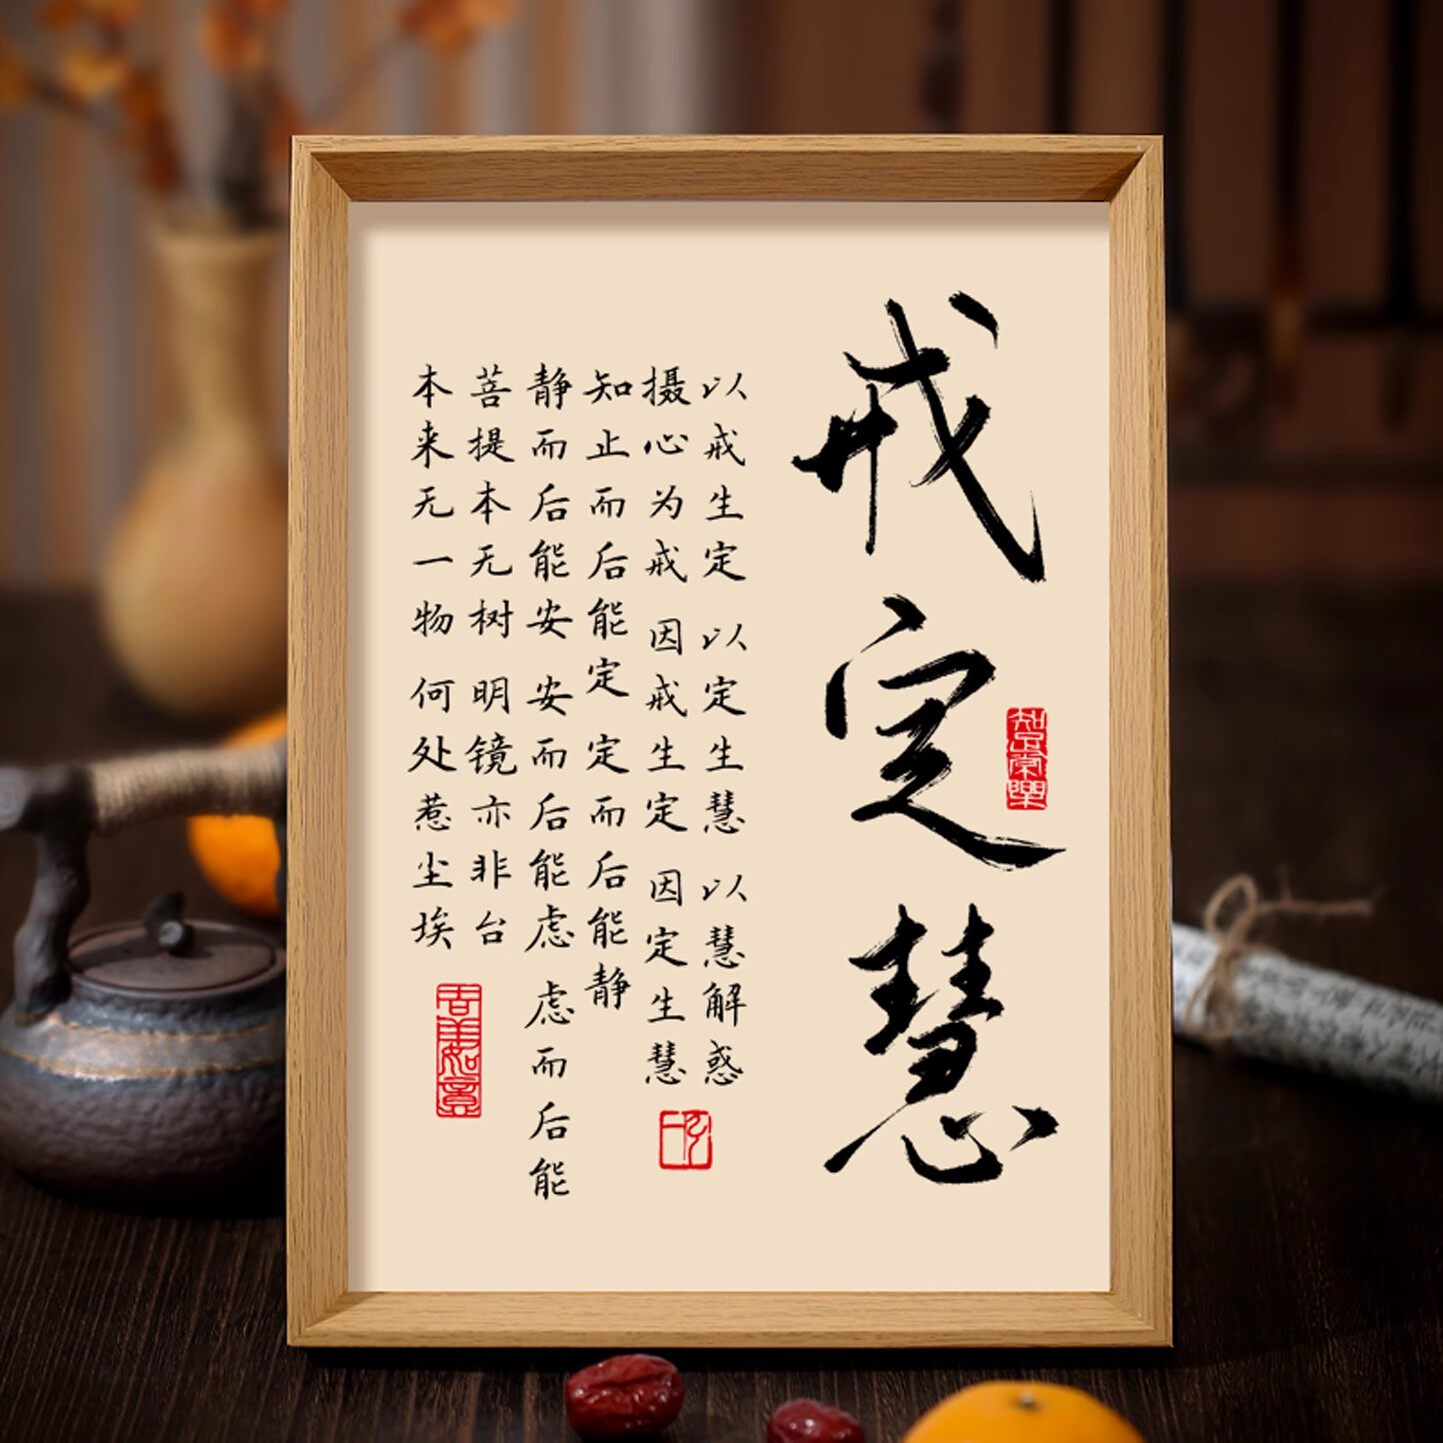 戒定慧
知足常樂
以戒生定 以定生慧 以慧解惑
摄心为戒 因戒生定 因定生慧
知止而后能定 定而后能静
静而后能安 安而后能虑 虑而后能
菩提本无树 明镜亦非台
本来无一物 何处惹尘埃
吉祥如意